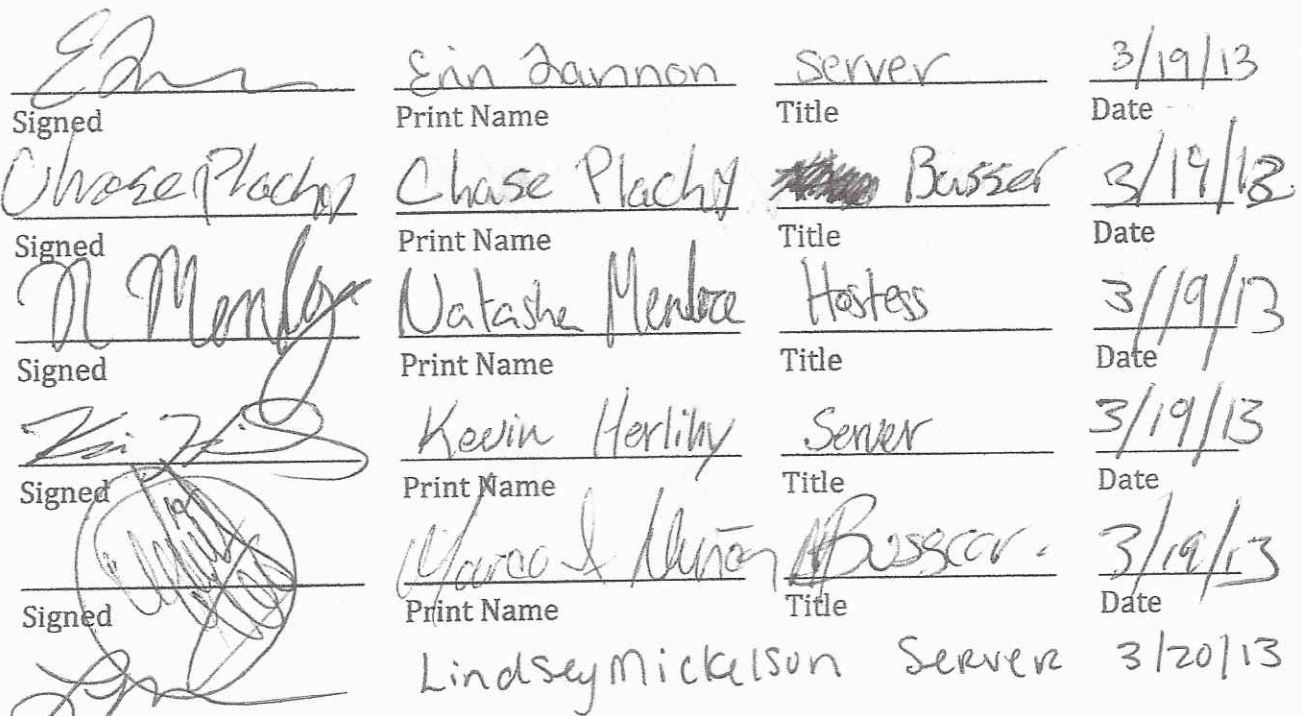 Erin Lannon server 3/19/13
Signed Print Name Title Date
Chase Plachy Chase Plachy Busser 3/19/13
Signed Print Name Title Date
N Mendoza Natasha Mendoza Hostess 3/19/13
Signed Print Name Title Date
Kevin Herlihy Server 3/19/13
Signed Print Name Title Date
Marco A 3/19/13
Signed Print Name Title Date
Lindsey Mickelson Server 3/20/13